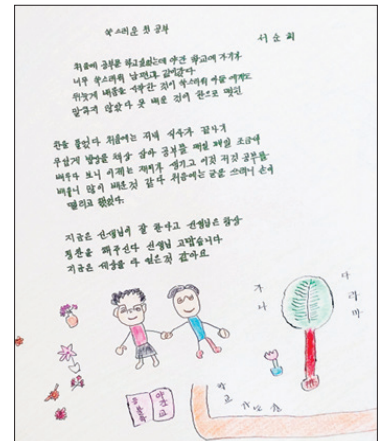 쑥스러운 첫 공부
서순희
처음에 공부를 하고싶었는데 야간 학교에 가기가
너무 쑥스러워 남편과 같이갔다
뒤늦게 배움을 시작한 것이 쑥스러워 아들 에게도
말하지 않았다 못 배운 것이 한으로 맺힌
한을 풀었다 처음에는 저녁 식사가 끝나기
무섭게 밥상을 책상 삼아 공부를 매일 매일 조금씩
배우다 보니 이제는 재미가 생기고 이것 저것 공부를
배우니 많이 배운것 같다 처음에는 글을 쓰려니 손이
떨리고 했었다.
지금은 선생님이 잘 한다고 선생님은 항상
칭찬을 해주신다 선생님 고맙습니다
지금은 세상을 다 얻은것 같아요
가
나
다
라
마